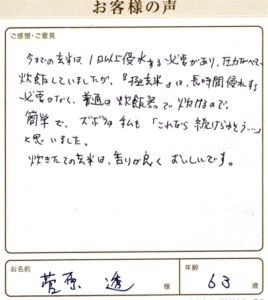 お客様の声
ご感想・ご意見
今までの玄米は、1日以上浸水する
必要があり、圧力なべで
炊飯していましたが、『極玄米』は、長時間浸水する
必要がなく、普通の炊飯器で炊けるので、
簡単で、ズボラな私も「これなら続けられそう…」
と思いました。
炊きたての玄米は、香りが良くおいしいです。
お名前
菅原 透 様
年齢
63 歳